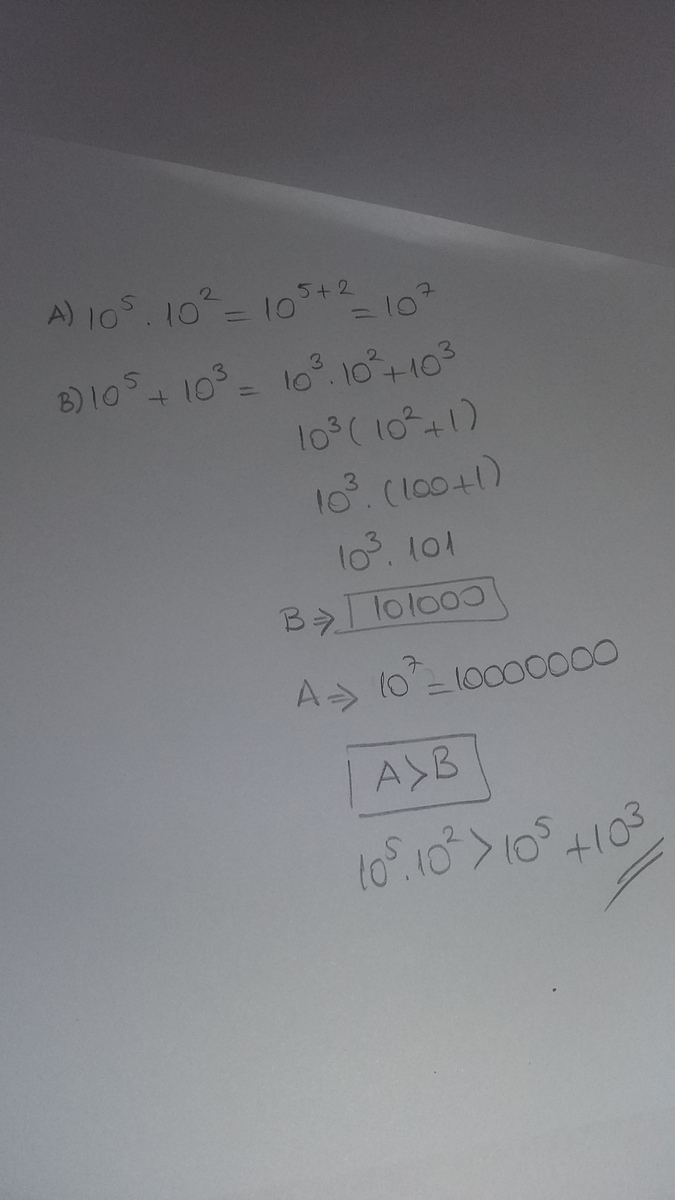 A) 10⁵ . 10² = 10⁵⁺² = 10⁷
B) 10⁵ + 10³ = 10³ . 10² + 10³
10³ ( 10² + 1 )
10³ . (100+1)
10³ . 101
B ⇒ 101000
A ⇒ 10⁷ = 10000000
A > B
10⁵ . 10² > 10⁵ + 10³